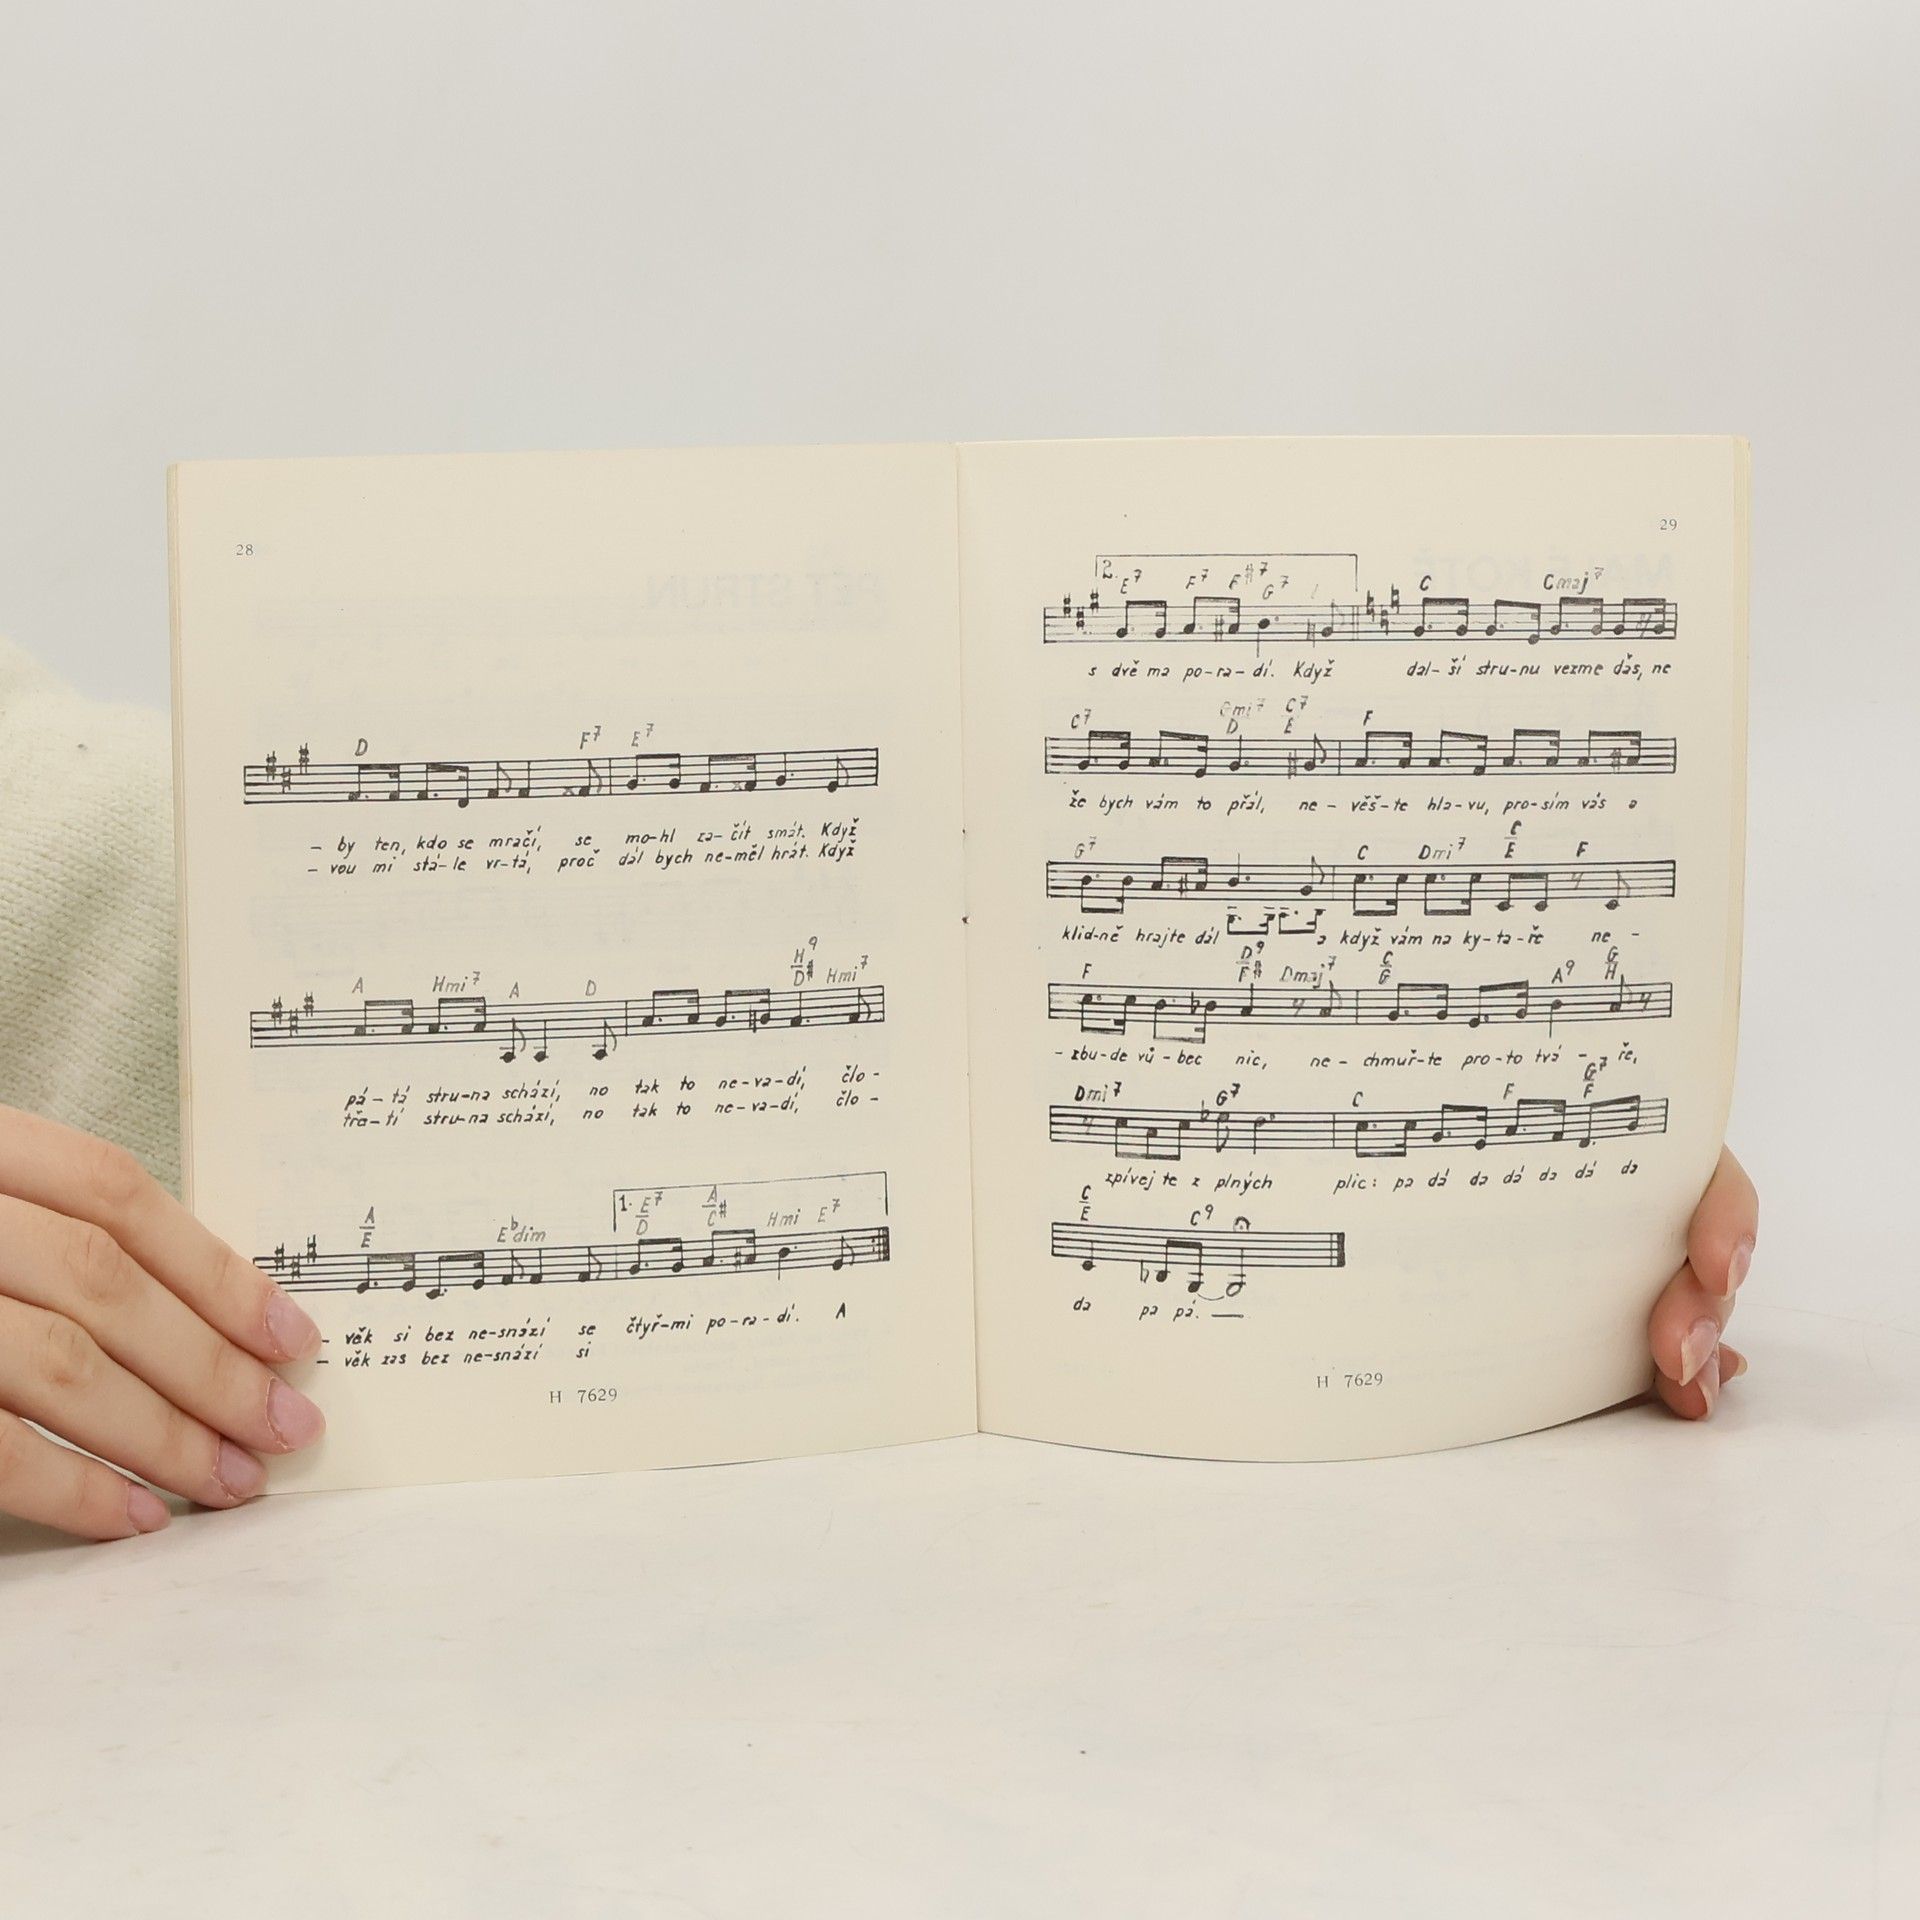 28
D F7 E7
- by ten, kdo se mračí, se mo-hl za-čít smát. Když
- vou mi stá-le vr-tá, proč dál bych ne-měl hrát. Když
A Hmi7 A D H9/D# Hmi7
pá-tá stru-na schází, no tak to ne-va-dí, člo-
tře-tí stru-na schází, no tak to ne-va-dí, člo-
A/E Ebdim 1. E7/D A/C# Hmi E7
- věk si bez ne-snází se čtyř-mi po-ra-dí. A
- věk zas bez ne-snází si
H 7629
29
2. E7 F7 F#7 G7 C Cmaj7
s dvě ma po-ra-dí. Když dal-ší stru-nu vezme ďas, ne
C7 Gmi7/D C7/E F
že bych vám to přál, ne-věš-te hla-vu, pro-sím vás a
G7 C Dmi7 C/E F
klid-ně hrajte dál a když vám na ky-ta-ře ne-
F D9/F# Dmaj7 C/G A9 G/H
- zbu-de vů-bec nic, ne-chmuř-te pro-to tvá-ře,
Dmi7 G7 C F G7/F
zpívej te z plných plic: pa dá da dá da dá da
C/E C9
da pa pá. —
H 7629